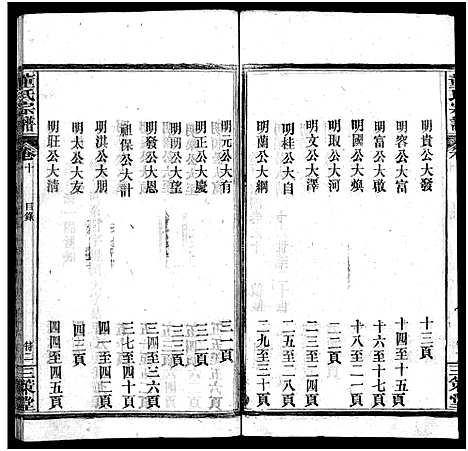 明貴公大發 十三頁
明容公大富 十四至十五頁
明富公大啟 十六至十七頁
明國公大煥 十八至二一頁
明取公大河 二二頁
明文公大澤 二三至二四頁
明桂公大自 二五至二八頁
明蘭公大綱 二九至三十頁
明元公大有 三一頁
明正公大慶 三二頁
明朗公大望 三三頁
明發公大恩 三四至三六頁
祖保公大計 三七至四十頁
明洪公大朋 四一至四二頁
明太公大友 四三頁
明莊公大清 四四至四五頁
董氏宗譜 卷十 目錄 三策堂